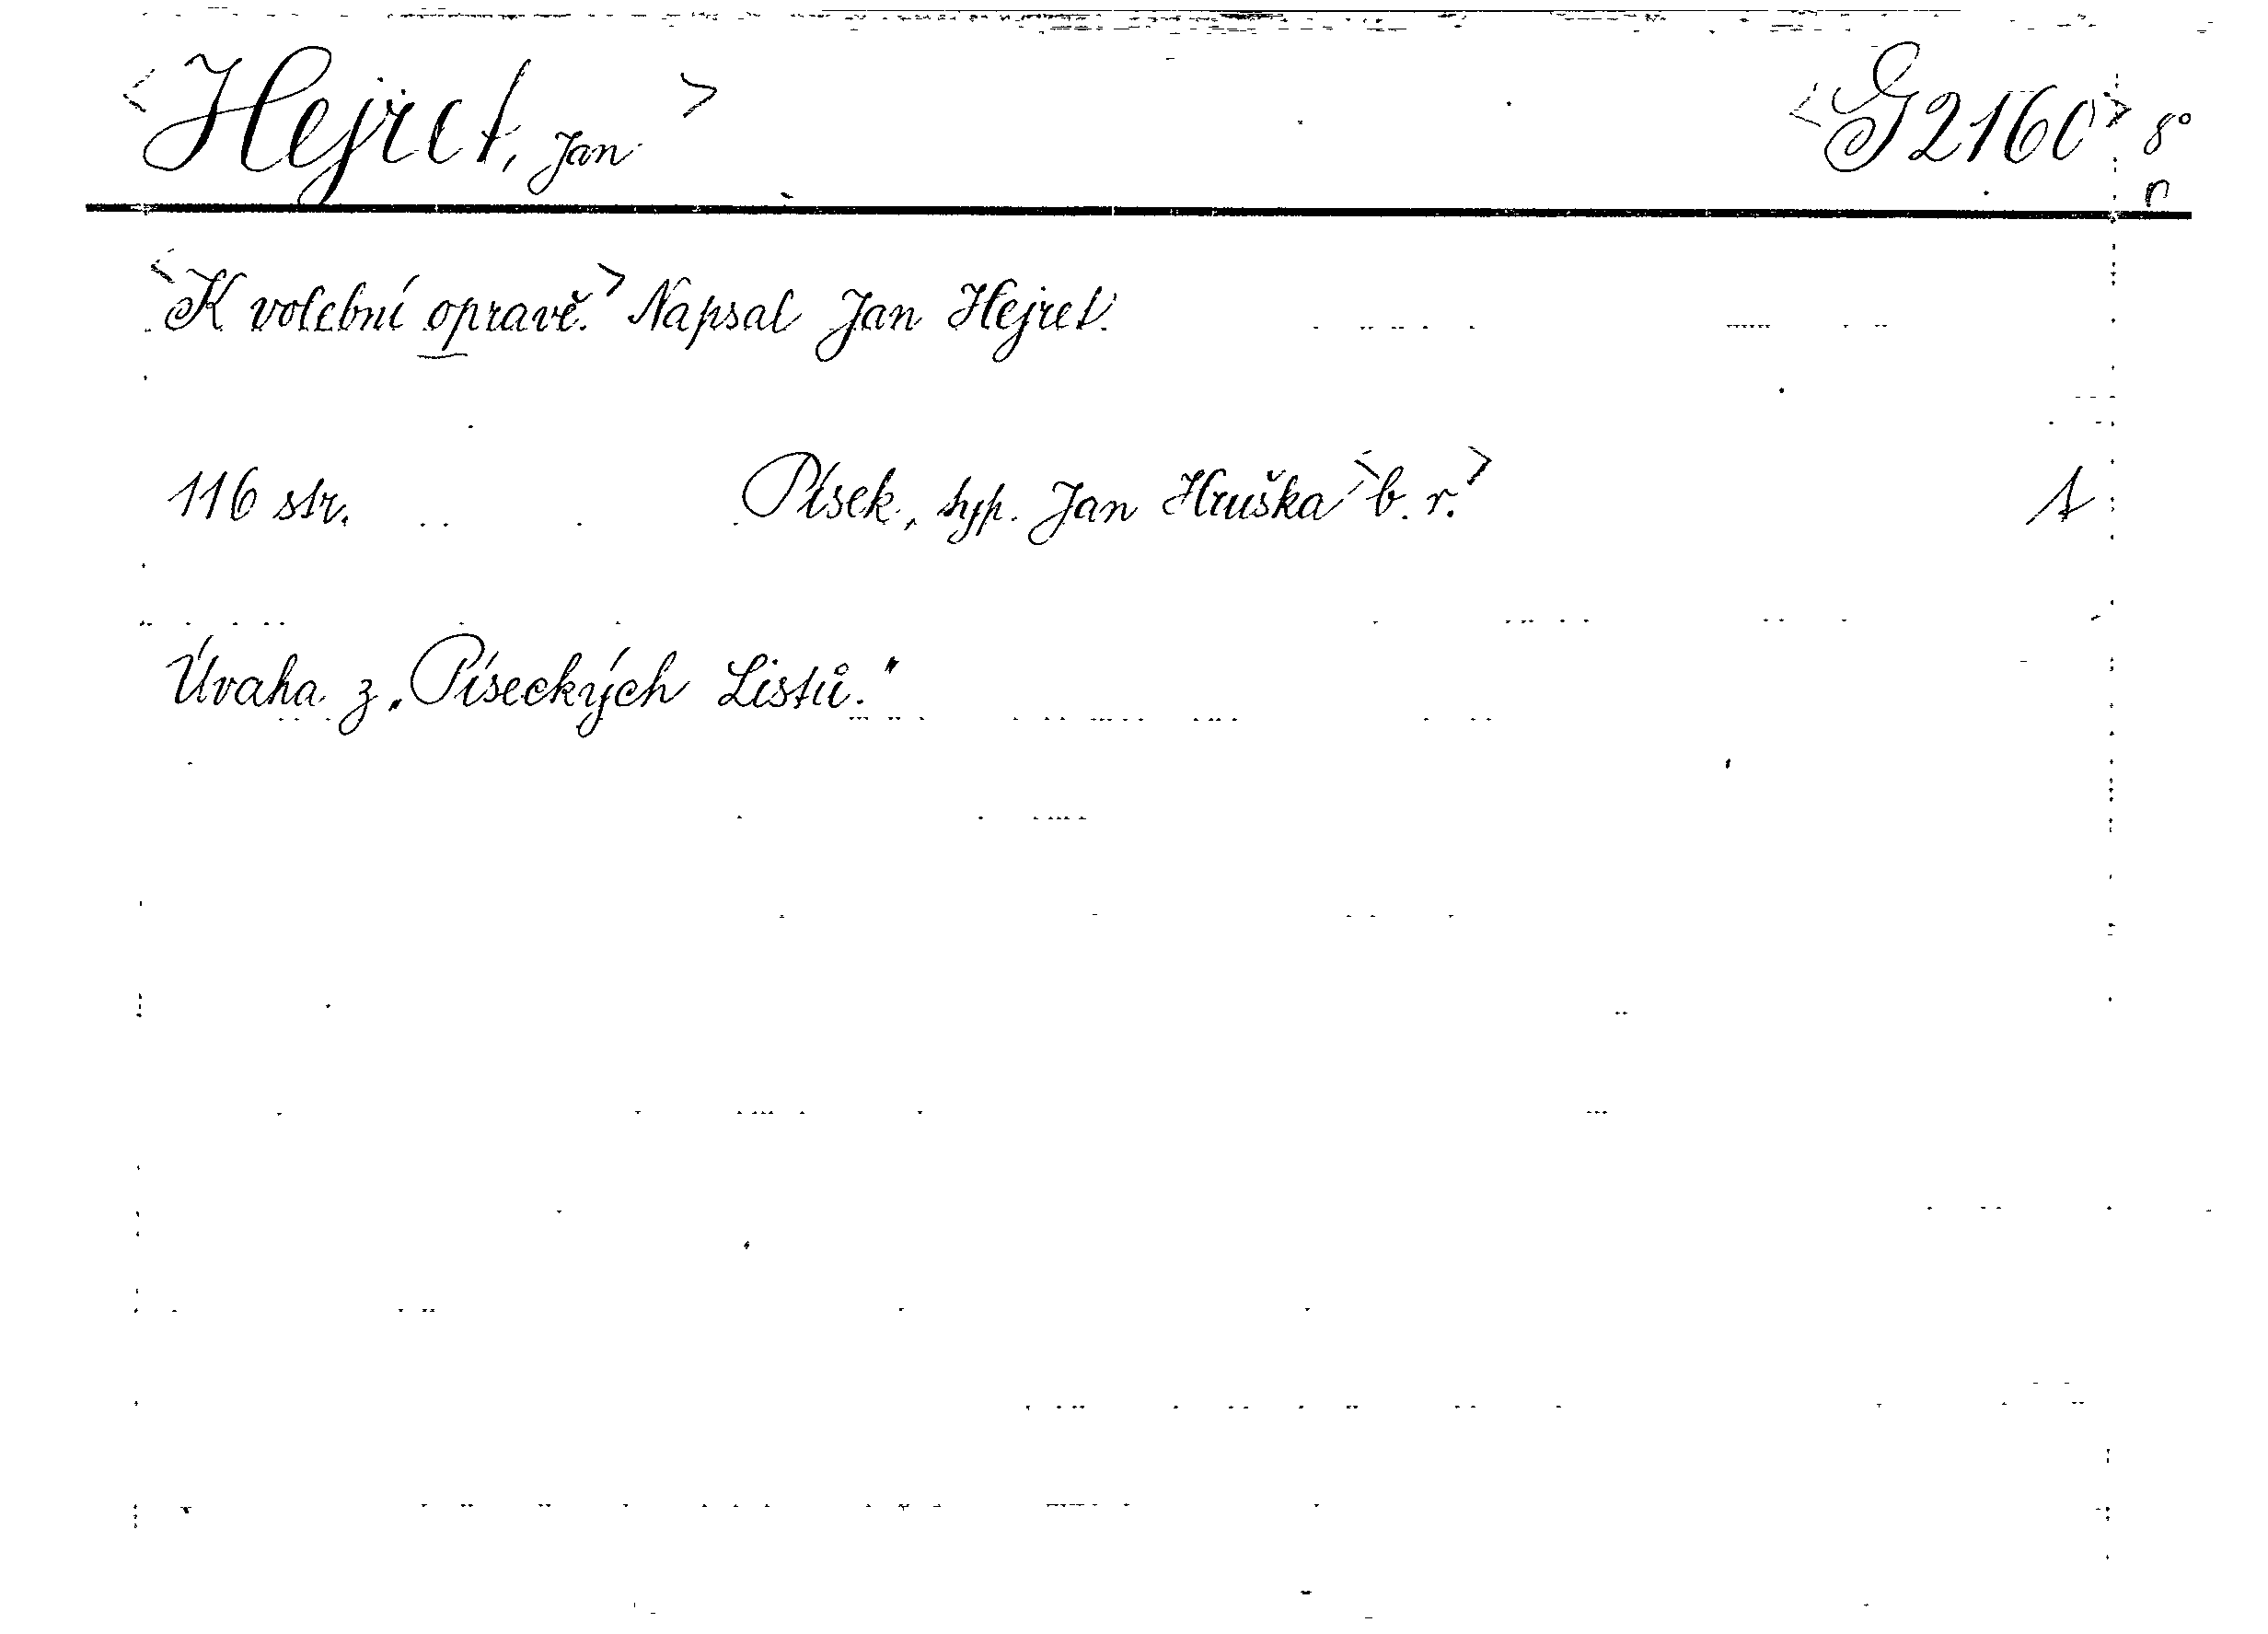 <Hejret, Jan> <G 2160> 8°
r
<K volební opravě.> Napsal Jan Hejret.
116 str. Písek, typ. Jan Hruška <b. r.> 1
Úvaha z „Píseckých Listů."